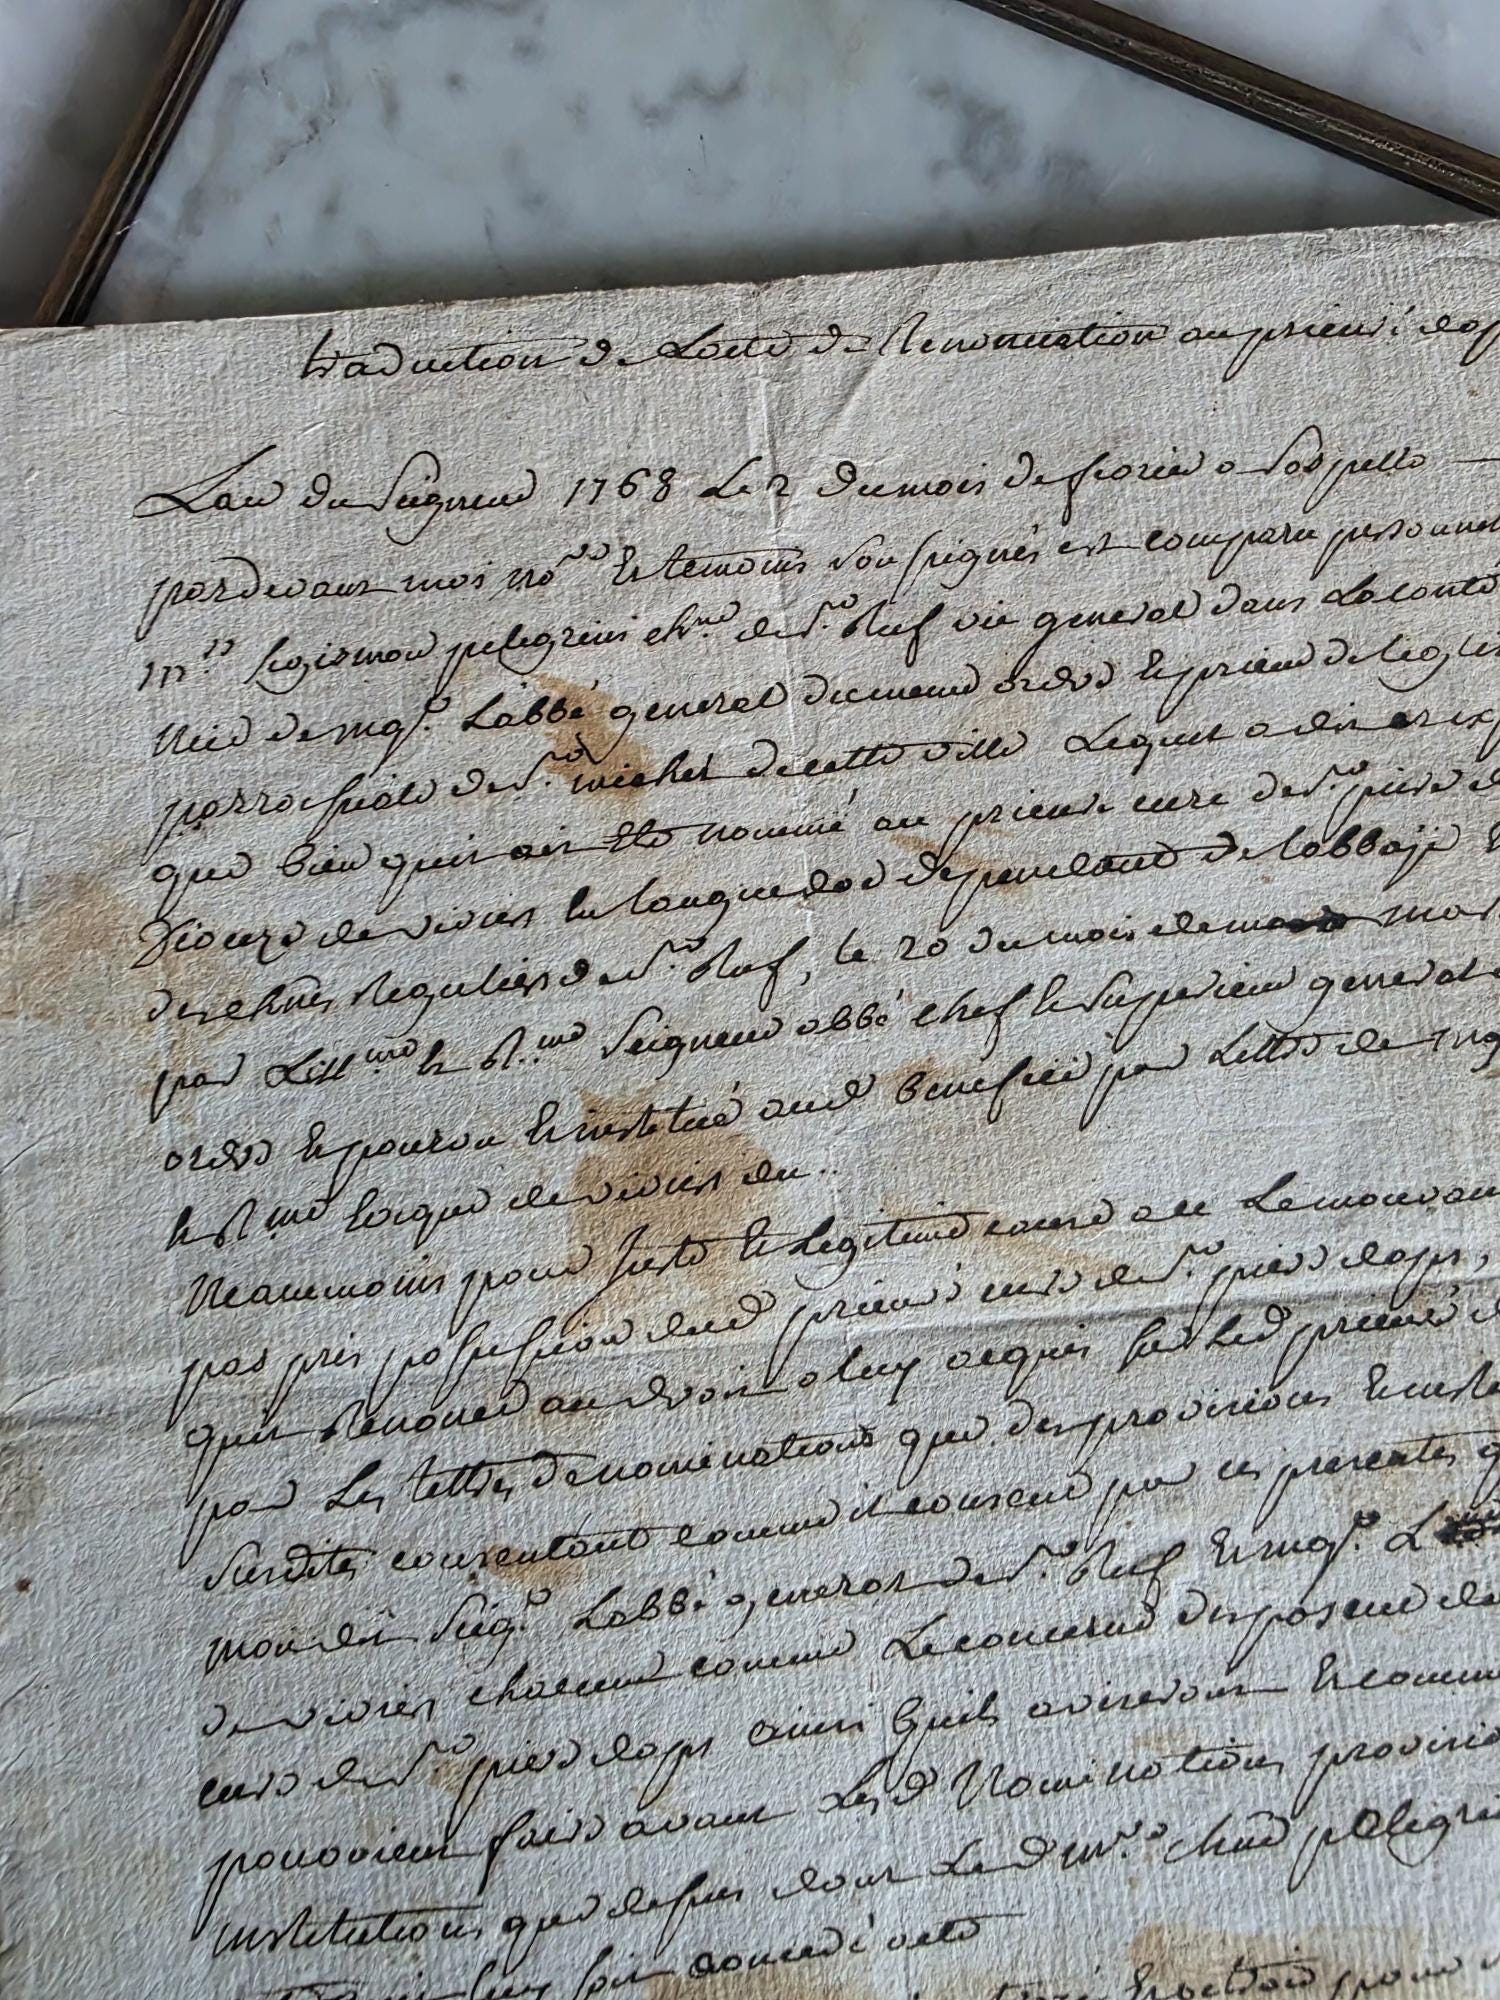 traduction de Lacte de Renonciation au prieuré daps
Lan du Seigneur 1768 Le 2 du mois de fevrier a Sospello
pardevant moi nore et temoins soussignés est comparu personnel
Mre Sigismon pelegrini chne de St Ruf vic general dans La conté
de mgr Labbé general du meme ordre et prieur de leglise
parroissiale de St michel de cette ville Lequel a dit et exp
que bien quil ait eté nommé au prieuré cure de St pierre d
dioceze de viviers en languedoc dependant de labbaye
des chnes Reguliers de St Ruf, le 20 du mois de mars
par Lillme et Rme Seigneur abbé chef et superieur general
ordre et pourvu et institué aud benefice par Lettre de mg
et Rme Eveque de viviers du..
Neammoins pour Juste et Legitime cause a ce Le mouvant
pas pris possession dud prieuré cure de St pierre daps,
quil Renonce au droit a luy acquis sur Led prieuré
par Les lettres de nominations que des provisions et institu
susdites consentant comme il consent par ces presentes q
mondit Seigr Labbé general de St Ruf et mgr L
de viviers chacun comme Le concerne disposent de
cure de St pierre daps ainsi quils aviseront et comme
pouvoient faire avant Lesd Nominations provisio
institutions que dessus dont Led Mre chne pelegri
luy soit concedé acte